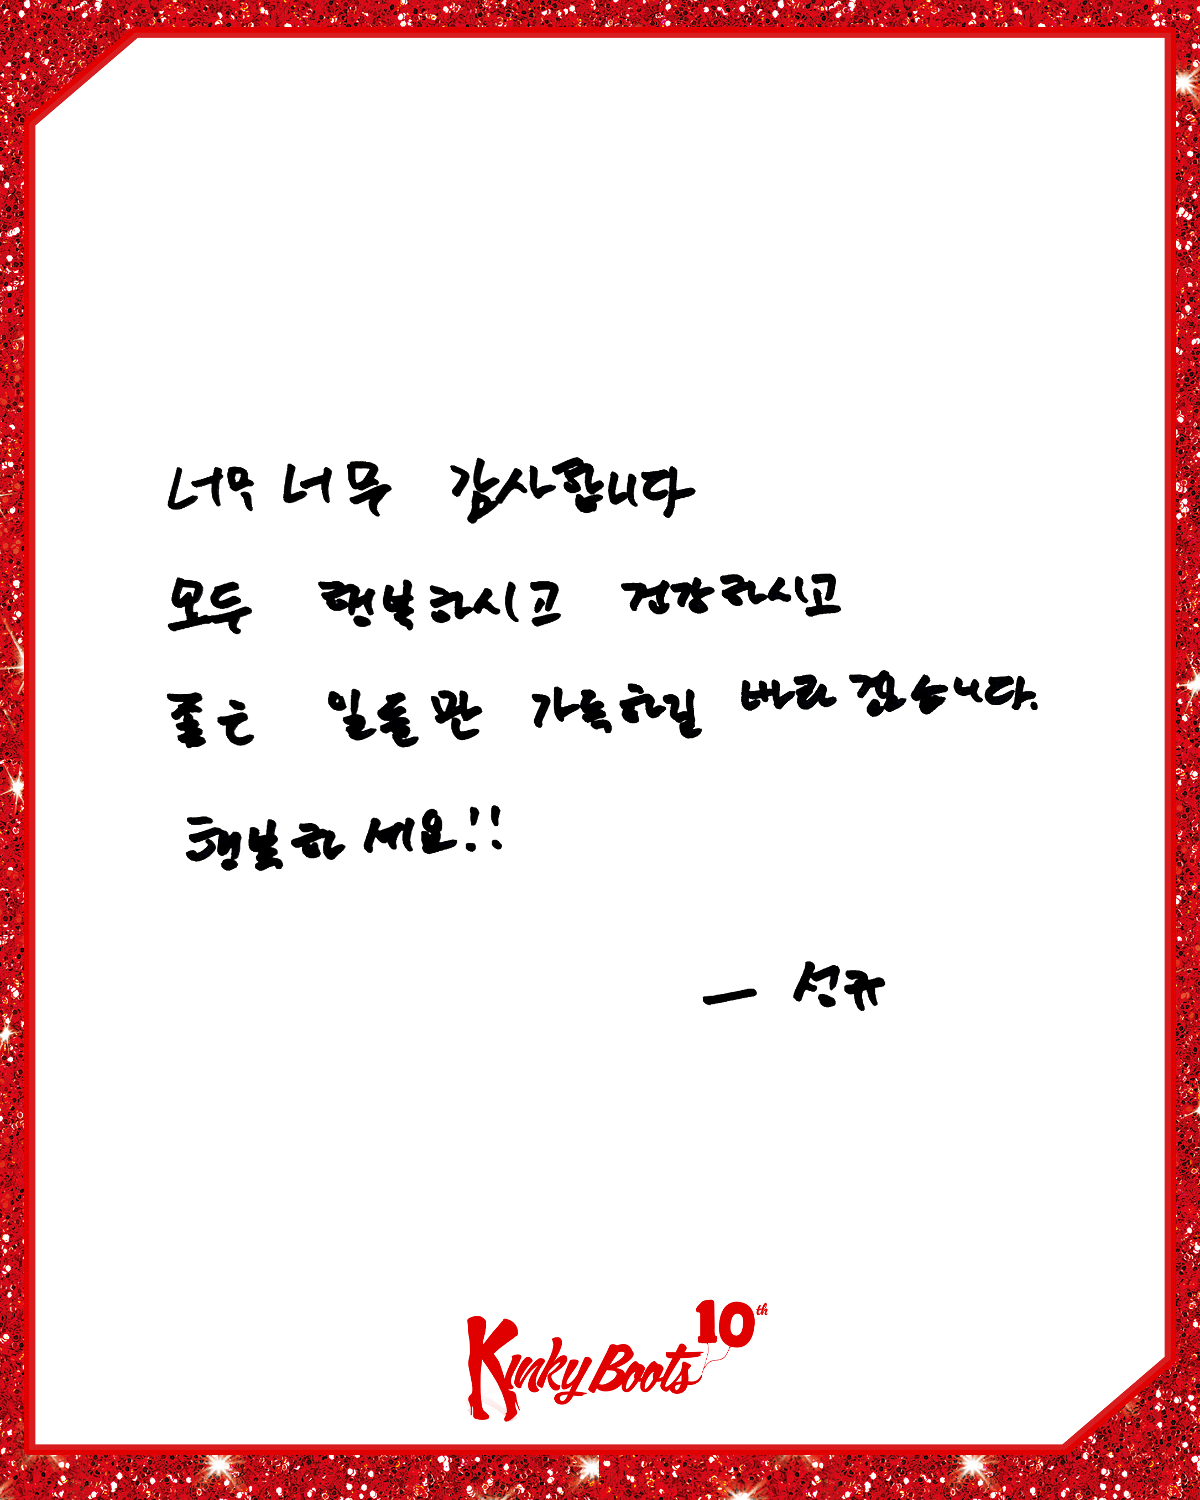 너무 너무 감사합니다
모두 행복하시고 건강하시고
좋은 일들만 가득하길 바라겠습니다.
행복하세요!!
— 성규
Kinky Boots 10th